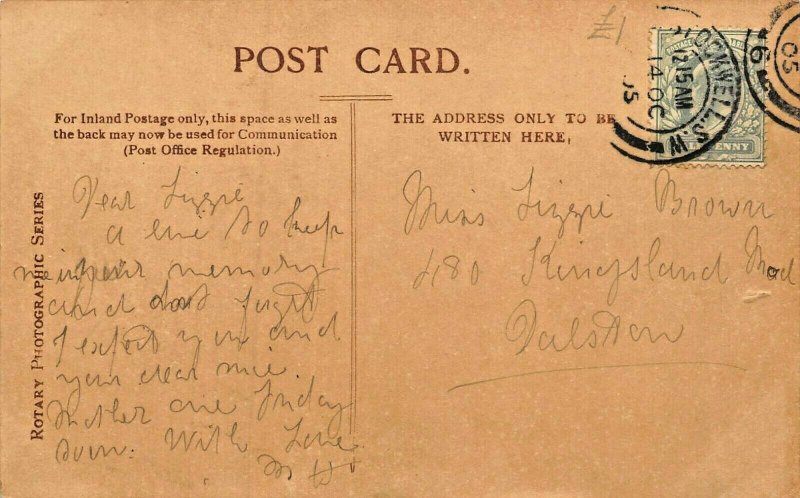 £1
POST CARD.
For Inland Postage only, this space as well as
the back may now be used for Communication
(Post Office Regulation.)
THE ADDRESS ONLY TO BE
WRITTEN HERE,
12.15AM
14 OC
05
S.W.
05
PENNY
ROTARY PHOTOGRAPHIC SERIES
Dear Lizzie
a line to keep
me in your memory
and dont forget
I expect you and
your dear
Mother one Friday
soon. With Love
Miss Lizzie Brown
480 Kingsland Road
Dalston